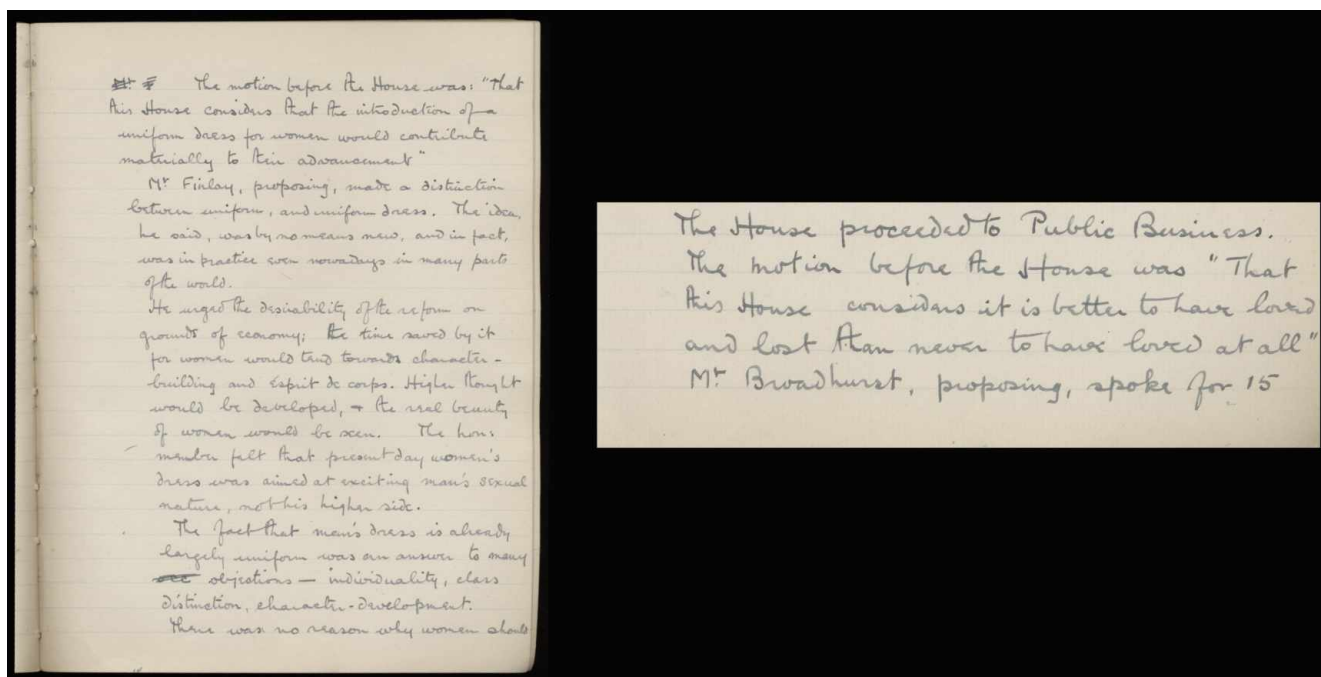 The motion before the House was: "That
this House considers that the introduction of a
uniform dress for women would contribute
materially to their advancement"
Mr Finlay, proposing, made a distinction
between uniform, and uniform dress. The idea,
he said, was by no means new, and in fact,
was in practice even nowadays in many parts
of the world.
He urged the desirability of the reform on
grounds of economy; the time saved by it
for women would tend towards character-
building and esprit de corps. Higher thought
would be developed, + the real beauty
of women would be seen. The hon:
member felt that present day women's
dress was aimed at exciting man's sexual
nature, not his higher side.
The fact that man's dress is already
largely uniform was an answer to many
objections — individuality, class
distinction, character-development.
There was no reason why women should
The House proceeded to Public Business.
The motion before the House was "That
this House considers it is better to have loved
and lost than never to have loved at all"
Mr Broadhurst, proposing, spoke for 15